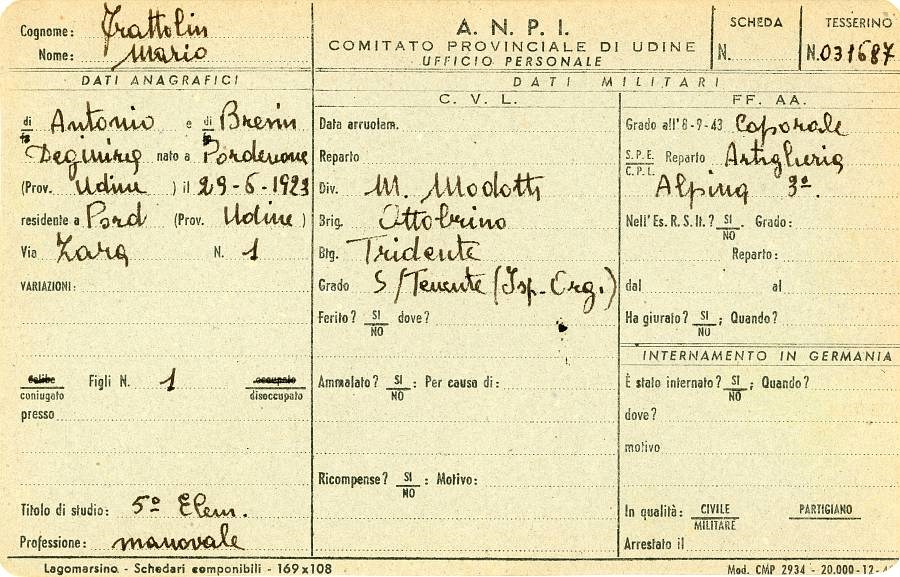 Cognome: Trattolin
Nome: Mario
A. N. P. I.
COMITATO PROVINCIALE DI UDINE
UFFICIO PERSONALE
SCHEDA
N.
TESSERINO
N. 031687
DATI ANAGRAFICI
di Antonio e di Bresin
Degimira nato a Pordenone
(Prov. Udine ) il 29-6-1923
residente a Pord (Prov. Udine )
Via Zara N. 1
VARIAZIONI:
celibe
coniugato
Figli N. 1
occupato
disoccupato
presso
Titolo di studio: 5º Elem.
Professione: manovale
DATI MILITARI
C. V. L.
Data arruolam.
Reparto
Div. M. Modotti
Brig. Ottobrino
Btg. Tridente
Grado S/Tenente (Isp. Org.)
Ferito? SI NO dove?
Ammalato? SI NO : Per causa di:
Ricompense? SI NO : Motivo:
FF. AA.
Grado all'8-9-43 Caporale
S.P.E. C.P.L. Reparto Artiglieria
Alpina 3º.
Nell'Es. R. S. It.? SI NO . Grado:
Reparto:
dal al
Ha giurato? SI NO ; Quando?
INTERNAMENTO IN GERMANIA
È stato internato? SI NO ; Quando?
dove?
motivo
In qualità: CIVILE MILITARE PARTIGIANO
Arrestato il
Lagomarsino - Schedari componibili - 169x108
Mod. CMP 2934 - 20.000-12-4